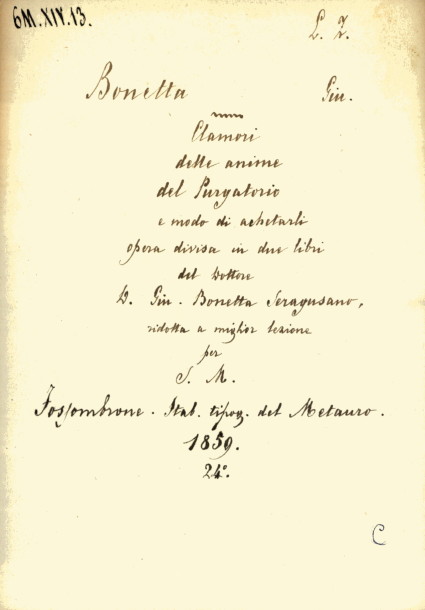 6M.XIV.13.
L. Z.
Bonetta Giu.
Clamori
delle anime
del Purgatorio
e modo di achetarli
opera divisa in due libri
del Dottore
D. Giu. Bonetta Seragusano,
ridotta a miglior lezione
per
S. M.
Fossombrone. Stab. tipog. del Metauro.
1859.
24°.
C